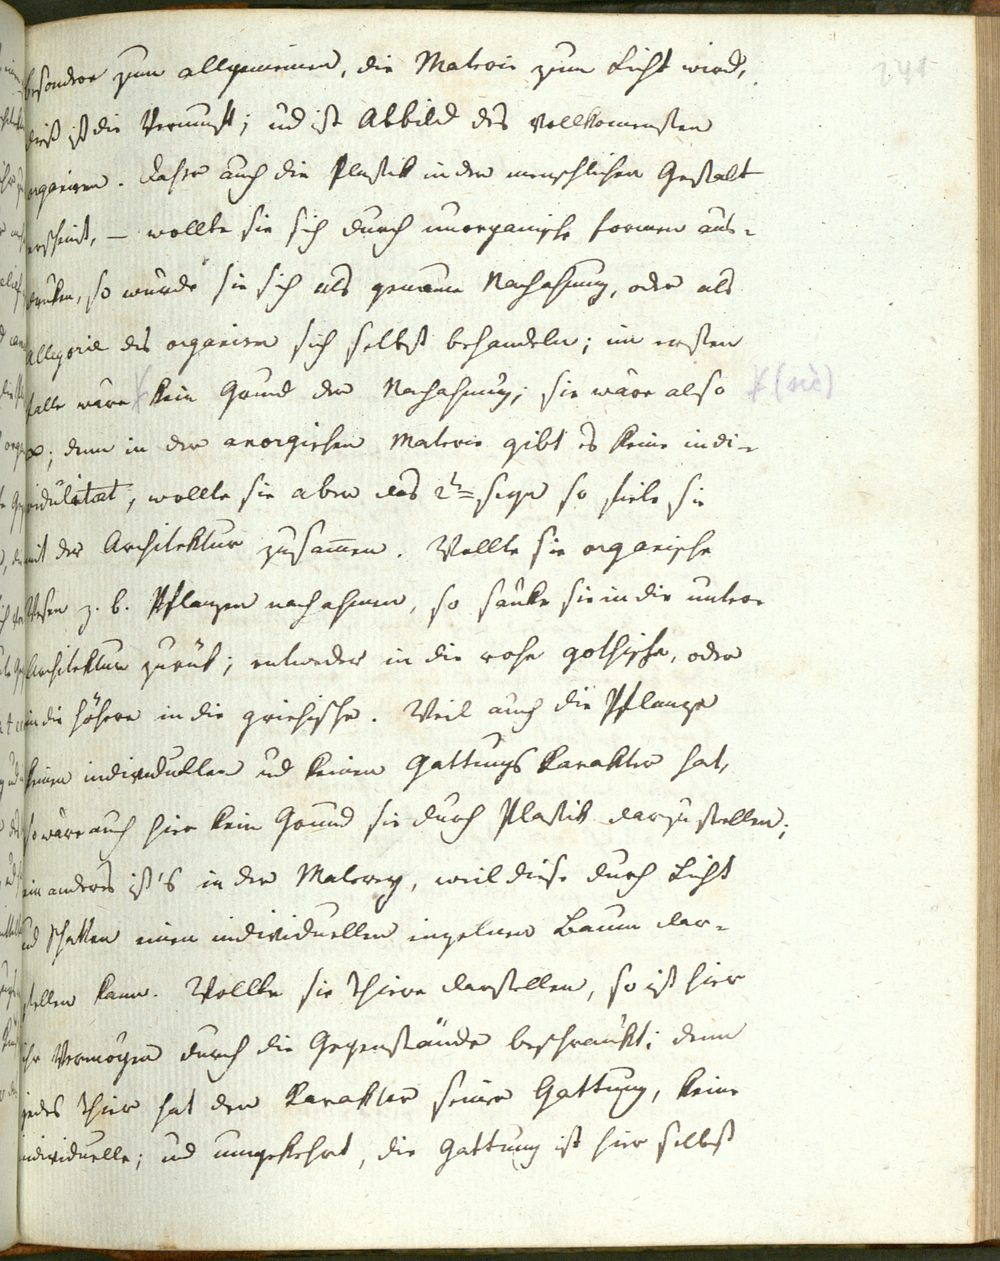 241
besondere zum allgemeinen, die Materie zum Licht wird,
dieß ist die Vernunft; ud ist Abbild des vollkomensten
organism. Daher auch die Plastik in der menschlichen Gestalt
erscheint, – wollte sie sich durch unorganische formen aus-
druken, so würde sie sich als genaue Nachahmung, oder als
Allegorie des organism sich selbst behandeln; im ersten
falle wäre kein Grund der Nachahmung; sie wäre also (sic)
denn in der anorgischen Materie gibt es keine indi-
vidulitæt, wollte sie aber das 2te seyn so fiele sie
mit der Architektur zusam̅en. Wollte sie organische
Wesen z. b. Pflanzen nachahmen, so sänke sie in die untere
Architektur zurük; entweder in die rohe gothische, oder
in die höhere in die griechische. Weil auch die Pflanze
keinen individuellen ud keinen Gattungs karakter hat,
so wäre auch hier kein Grund sie durch Plastik darzustellen;
ein anders ist's in der Malerey, weil diese durch Licht
ud schatten einen individuellen inzelnen Baum dar-
stellen kann. Wollte sie Thiere darstellen, so ist hier
ihr Vermögen durch die Gegenstände beschränkt; denn
jedes Thier hat den karakter seiner Gattung, keine
individuelle; ud umgekehrt, die Gattung ist hier selbst